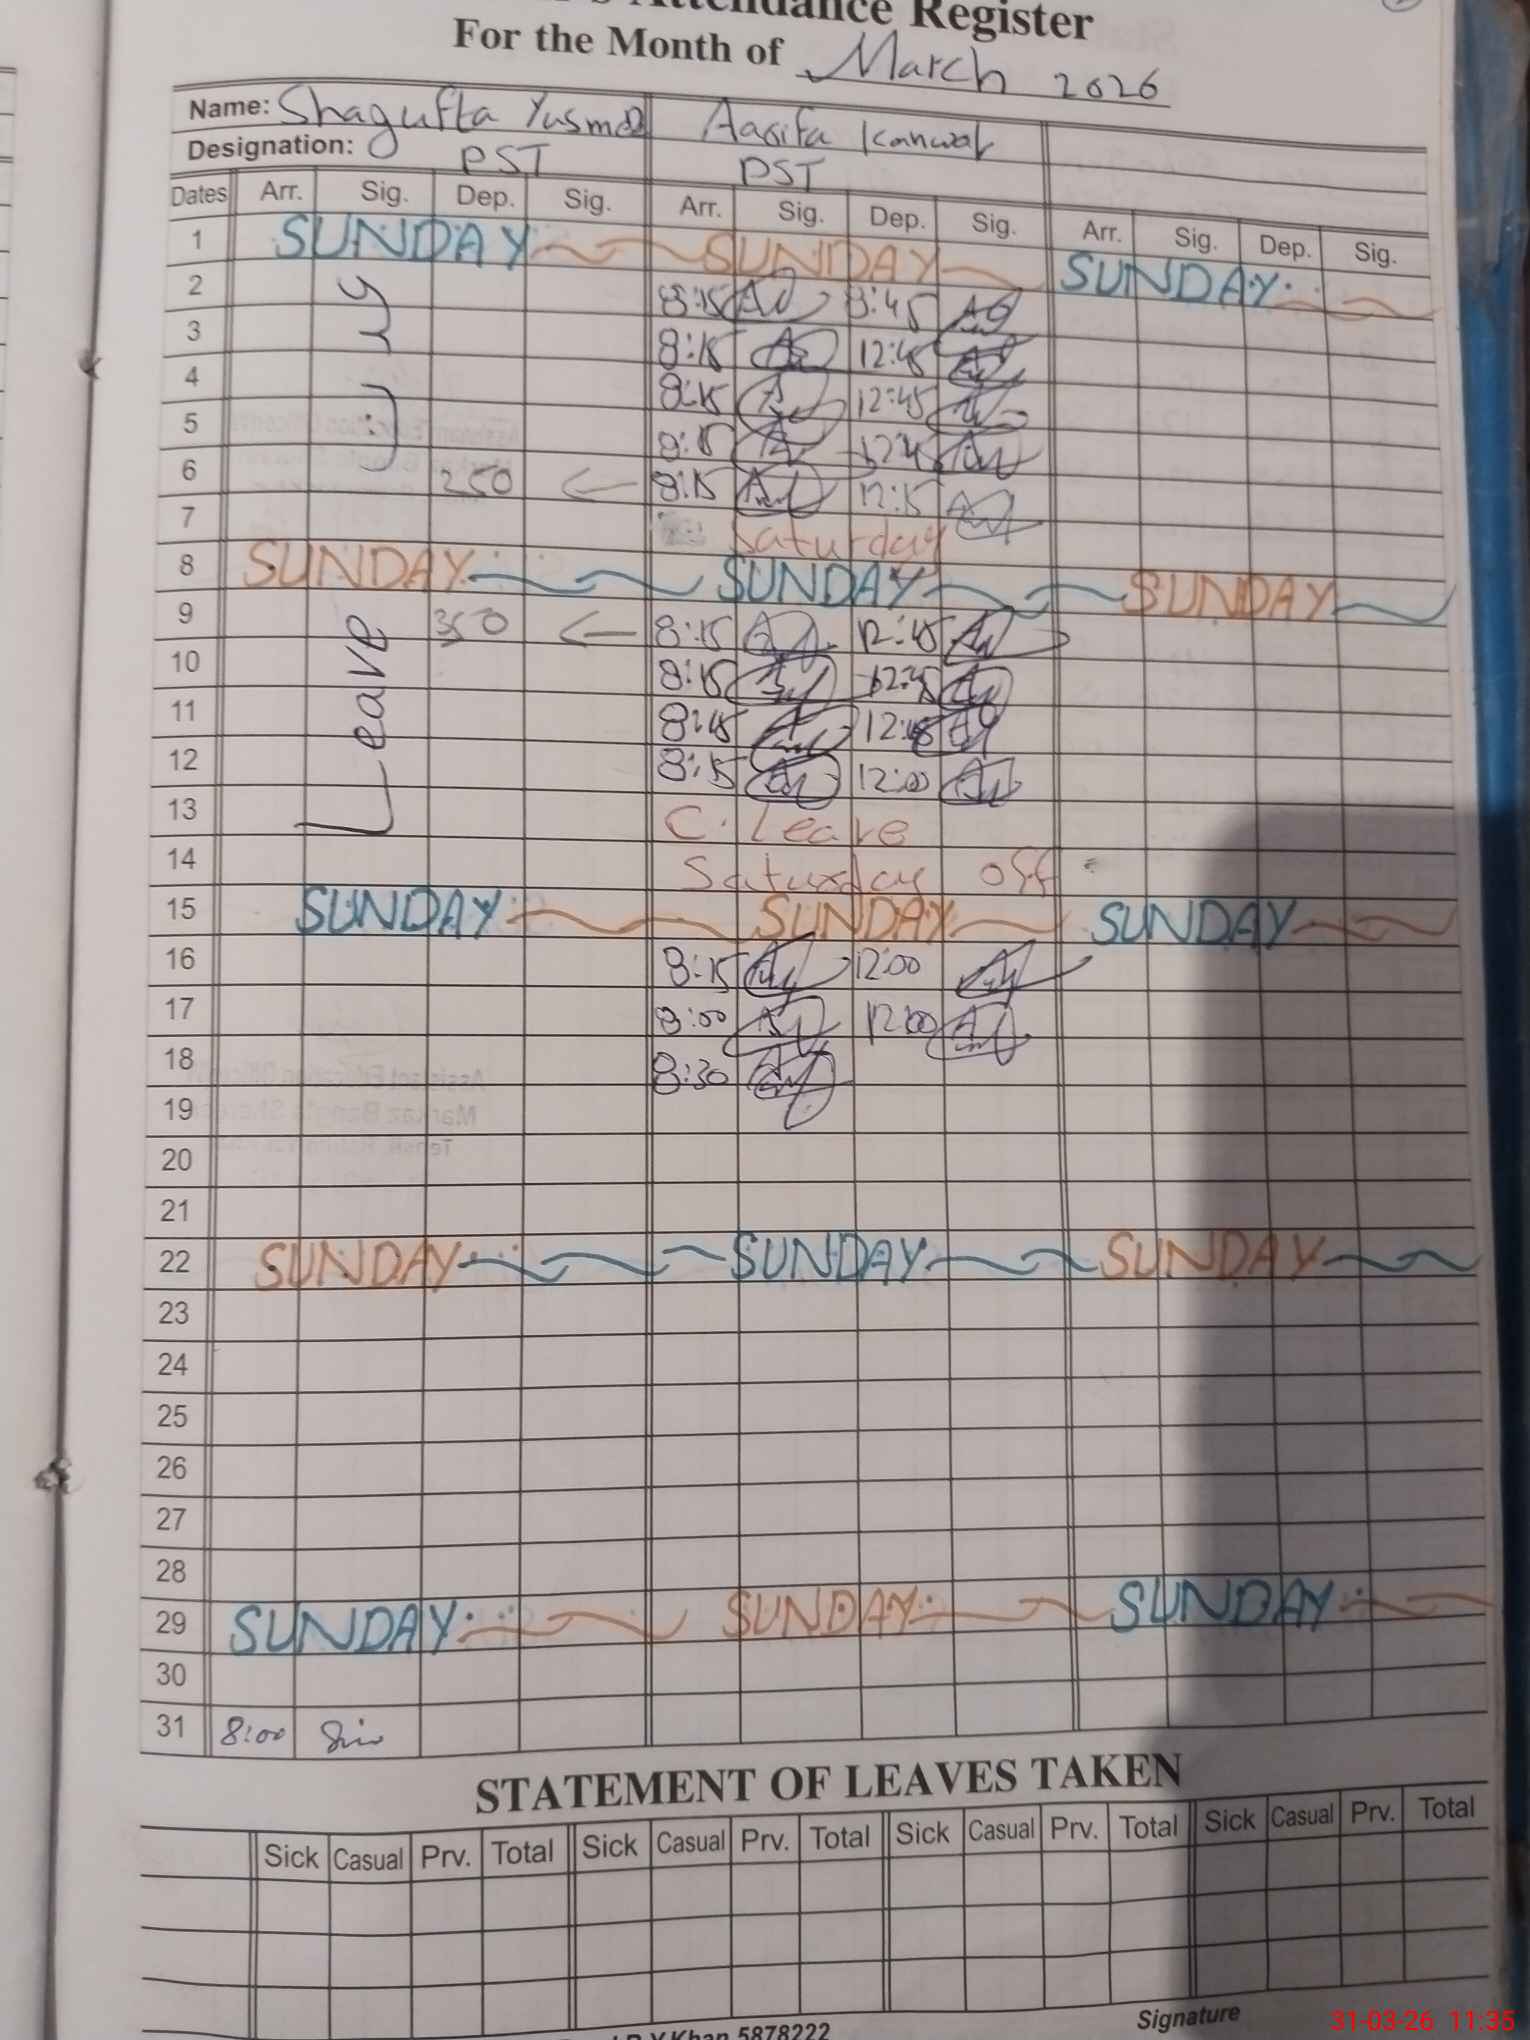 Attendance Register
For the Month of March 2026
Name: Shagufta Aasifa Kanwal
Designation: PST PST
Dates Arr. Sig. Dep. Sig. Arr. Sig. Dep. Sig. Arr. Sig. Dep. Sig.
1 SUNDAY SUNDAY SUNDAY
2 8:15 8:45
3 8:15 12:45
4 8:15 12:45
5 8:15
6 250 8:15 12:15
7 Saturday
8 SUNDAY SUNDAY SUNDAY
Leave
9 350 8:15 12:45
10 8:15 12:45
11 12:45
12 8:15 12:00
13 C. Leave
14 Saturday off
15 SUNDAY SUNDAY SUNDAY
16 8:15 12:00
17 8:00 12:00
18 8:30
19
20
21
22 SUNDAY SUNDAY SUNDAY
23
24
25
26
27
28
29 SUNDAY SUNDAY SUNDAY
30
31 8:00
STATEMENT OF LEAVES TAKEN
Sick Casual Prv. Total Sick Casual Prv. Total Sick Casual Prv. Total Sick Casual Prv. Total
Khan 5878222
Signature
31-03-26 11:35